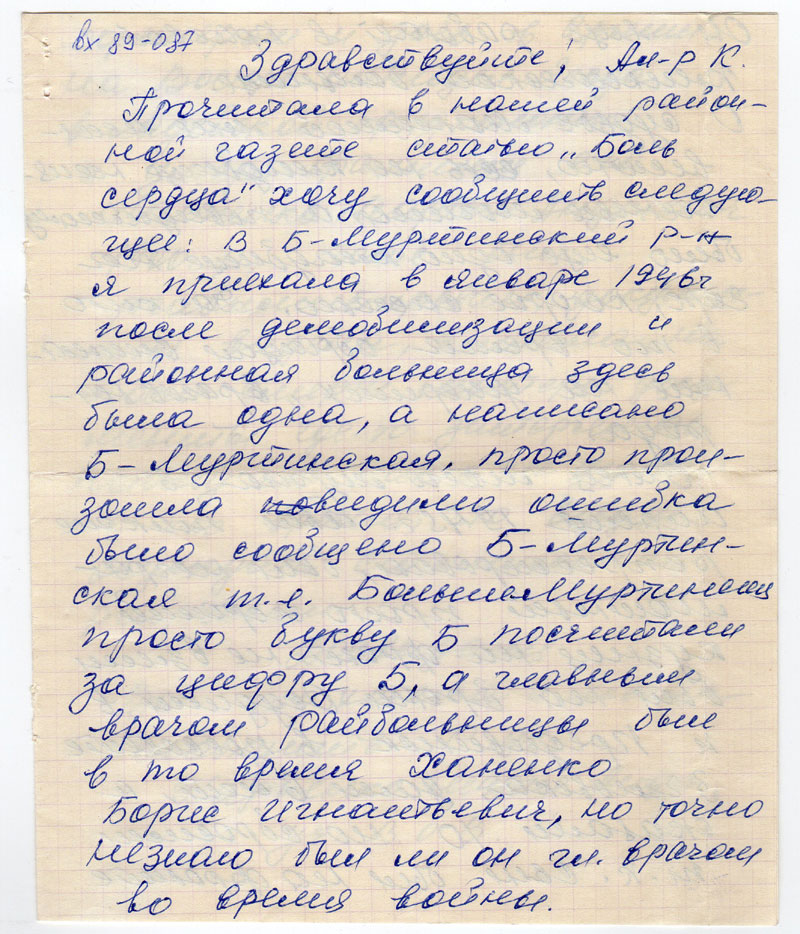 вх 89-087
Здравствуйте, Ал-р К.
Прочитала в нашей район-
ной газете статью „Боль
сердца" хочу сообщить следую-
щее: В Б-Муртинский р-н
я приехала в январе 1946г
после демобилизации и
районная больница здесь
была одна, а написано
Б-Муртинская, просто прои-
зошла повидимо ошибка
было сообщено Б-Муртин-
ская т.е. БольшеМуртинская
просто букву Б посчитали
за цифру Б, а главным
врачом райбольницы был
в то время Ханенко
Борис Игнатьевич, но точно
незнаю был ли он гл. врачом
во время войны.